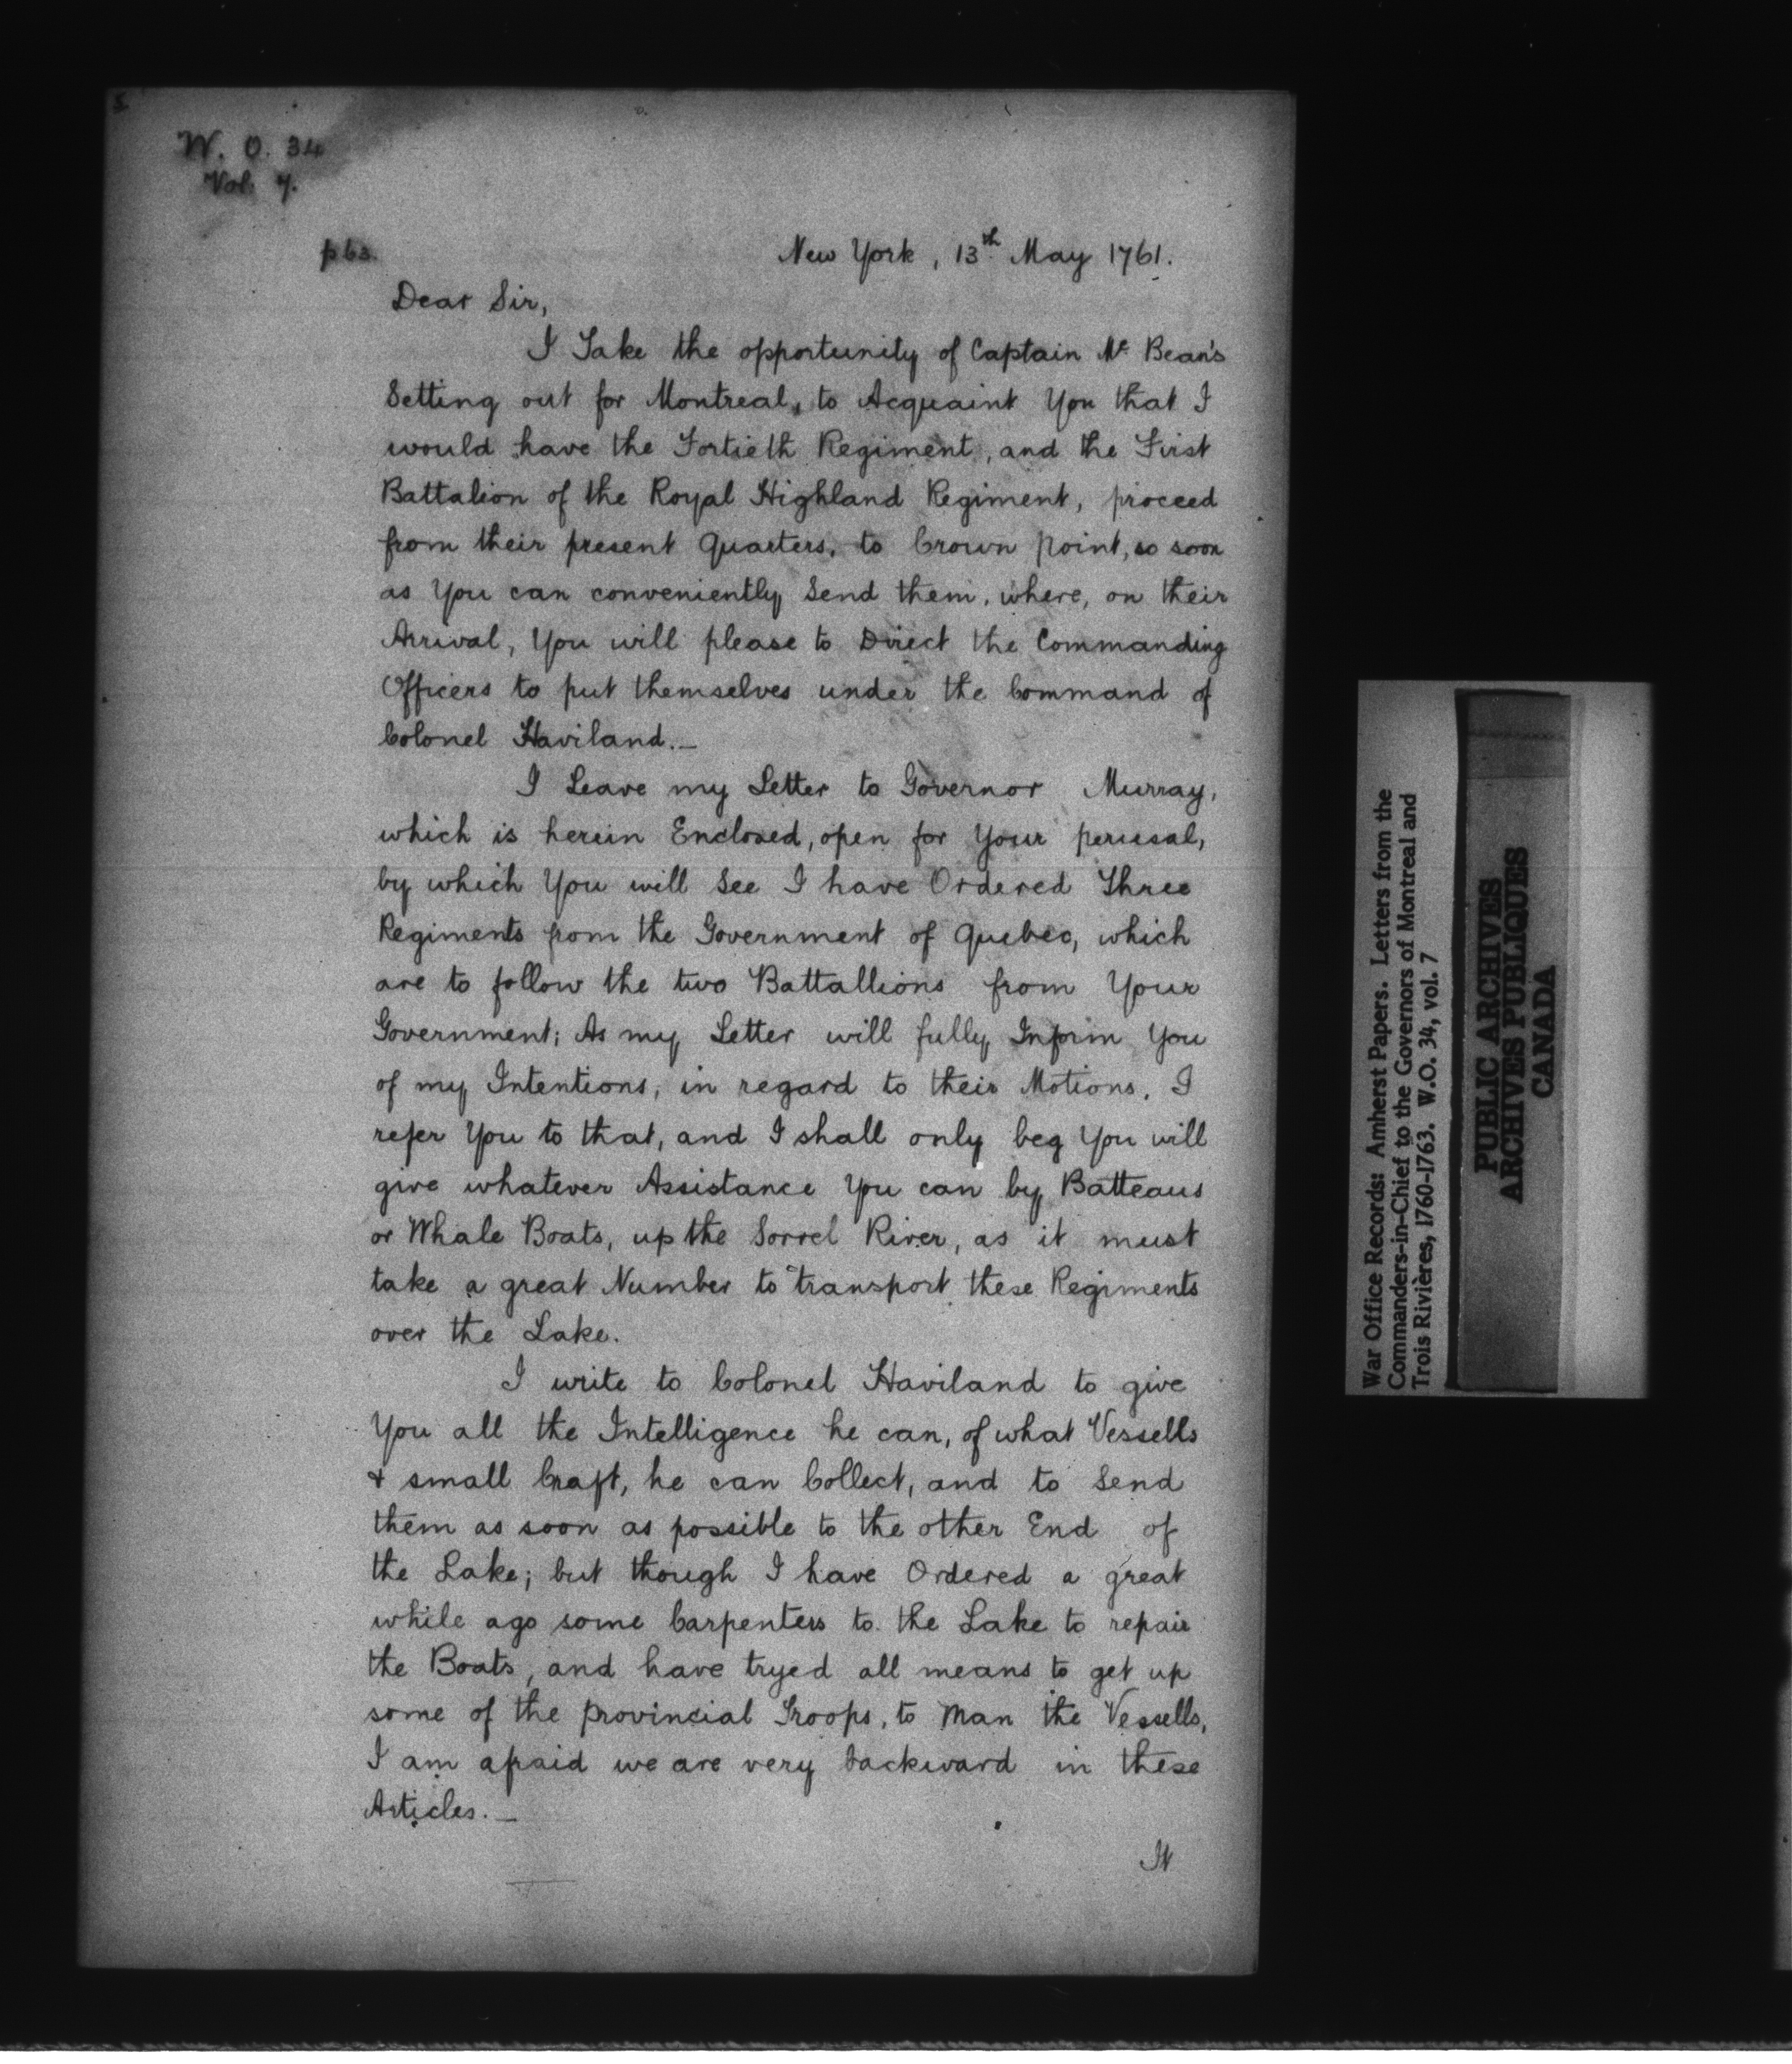 W. O. 34
Vol. 7.
p 63.
New York, 13th May 1761.
Dear Sir,
I Take the opportunity of Captain Mc Bean's
Setting out for Montreal, to Acquaint You that I
would have the Fortieth Regiment, and the First
Battalion of the Royal Highland Regiment, proceed
from their present Quarters, to Crown Point, so soon
as You can conveniently Send them, where, on their
Arrival, You will please to Direct the Commanding
Officers to put themselves under the Command of
Colonel Haviland._
I Leave my Letter to Governor Murray,
which is herein Enclosed, open for Your perusal,
by which You will See I have Ordered Three
Regiments from the Government of Quebec, which
are to follow the two Battallions from Your
Government; As my Letter will fully Inform You
of my Intentions, in regard to their Motions, I
refer You to that, and I shall only beg You will
give whatever Assistance You can by Batteaus
or Whale Boats, up the Sorrel River, as it must
take a great Number to transport these Regiments
over the Lake.
I write to Colonel Haviland to give
You all the Intelligence he can, of what Vessells
& small Craft, he can Collect, and to Send
them as soon as possible to the other End of
the Lake; but though I have Ordered a great
while ago some Carpenters to the Lake to repair
the Boats, and have tryed all means to get up
some of the Provincial Troops, to Man the Vessells,
I am afraid we are very backward in these
Articles._
It
War Office Records: Amherst Papers. Letters from the
Commanders-in-Chief to the Governors of Montreal and
Trois Rivières, 1760-1763. W.O. 34, vol. 7
PUBLIC ARCHIVES
ARCHIVES PUBLIQUES
CANADA